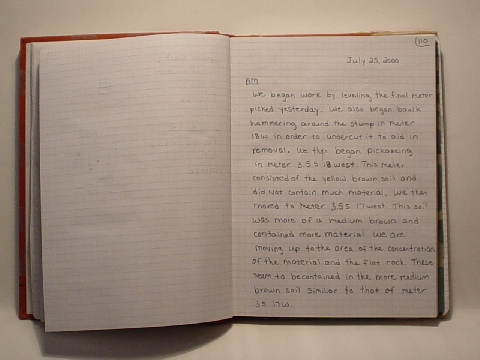 110
July 25, 2000
AM
We began work by leveling the final meter
picked yesterday. We also began
hammering around the stump in meter
18w in order to undercut it to aid in
removal. We then began pickaxeing
in meter 3.5 S 18 west. This meter
consisted of the yellow brown soil and
did not contain much material. We then
moved to meter 3.5 S 17 west. This soil
was more of a medium brown and
contained more material. We are
moving up to the area of the concentration
of the material and the flat rock. These
seem to be contained in the more medium
brown soil similar to that of meter
3S 17w.